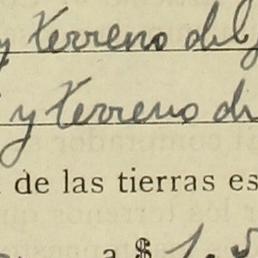 y terreno del
y terreno de
de las tierras es
a $ 1.5